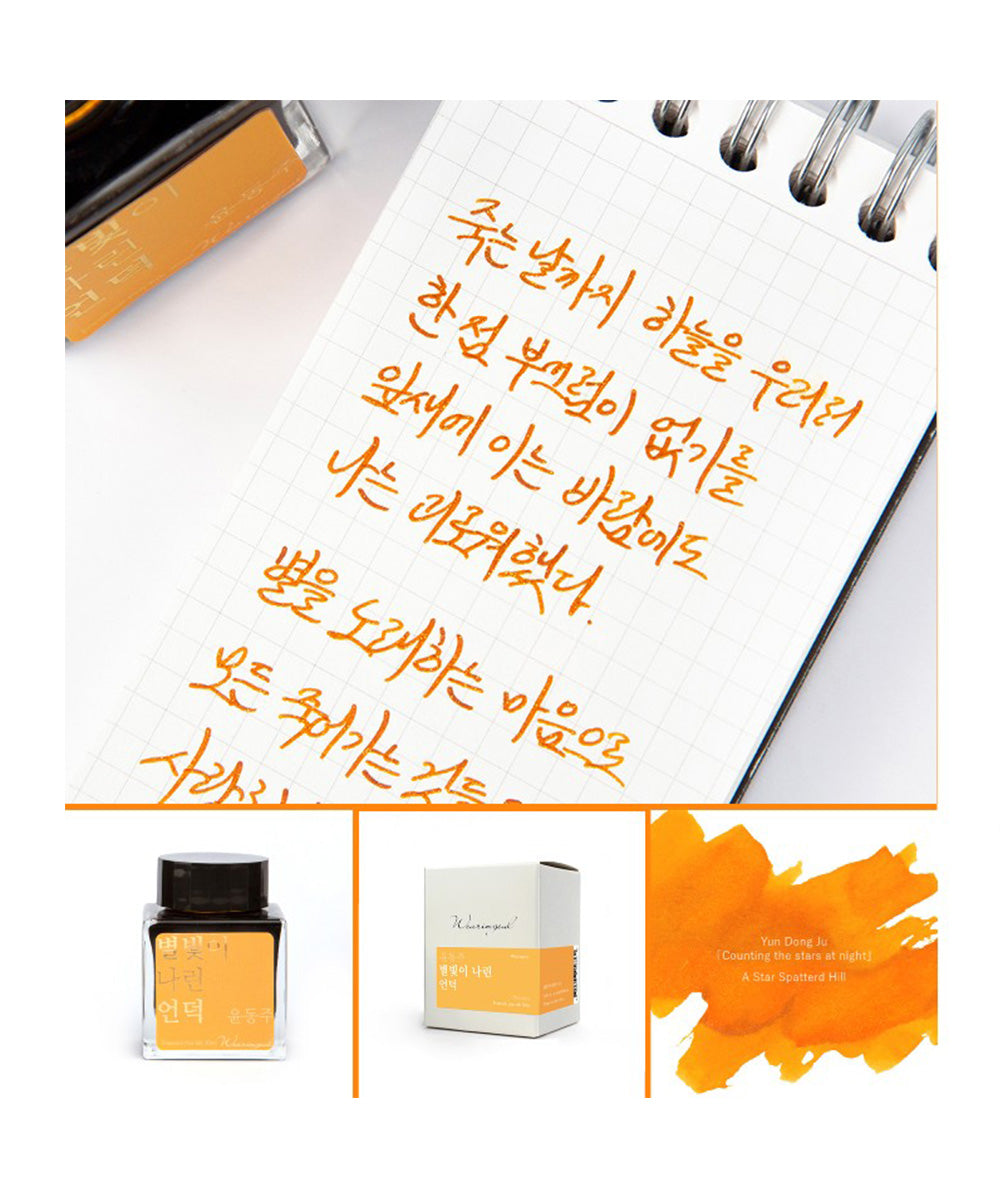 죽는 날까지 하늘을 우러러
한 점 부끄럼이 없기를
잎새에 이는 바람에도
나는 괴로워했다.
별을 노래하는 마음으로
모든 죽어가는 것들
사랑
별빛이
나린
언덕
윤동주
Wearingeul
Wearingeul
윤동주
별빛이 나린
언덕
Yun Dong Ju
「Counting the stars at night」
A Star Spatterd Hill